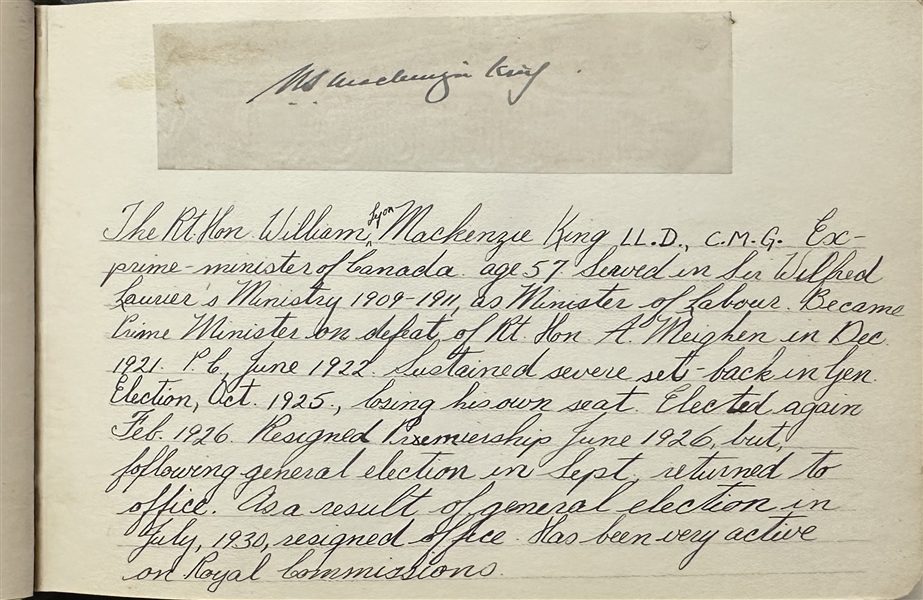 WL Mackenzie King.
The Rt. Hon. William Lyon Mackenzie King LL.D., C.M.G. Ex-
prime-minister of Canada. age 57. Served in Sir Wilfred
Laurier's Ministry 1909-1911, as Minister of Labour. Became
Prime Minister on defeat, of Rt. Hon. A. Meighen in Dec.
1921. P.C., June 1922. Sustained severe set-back in Gen.
Election, Oct. 1925., losing his own seat. Elected again
Feb. 1926. Resigned Premiership June 1926, but,
following general election in Sept, returned to
office. As a result of general election in
July, 1930, resigned office. Has been very active
on Royal Commissions.